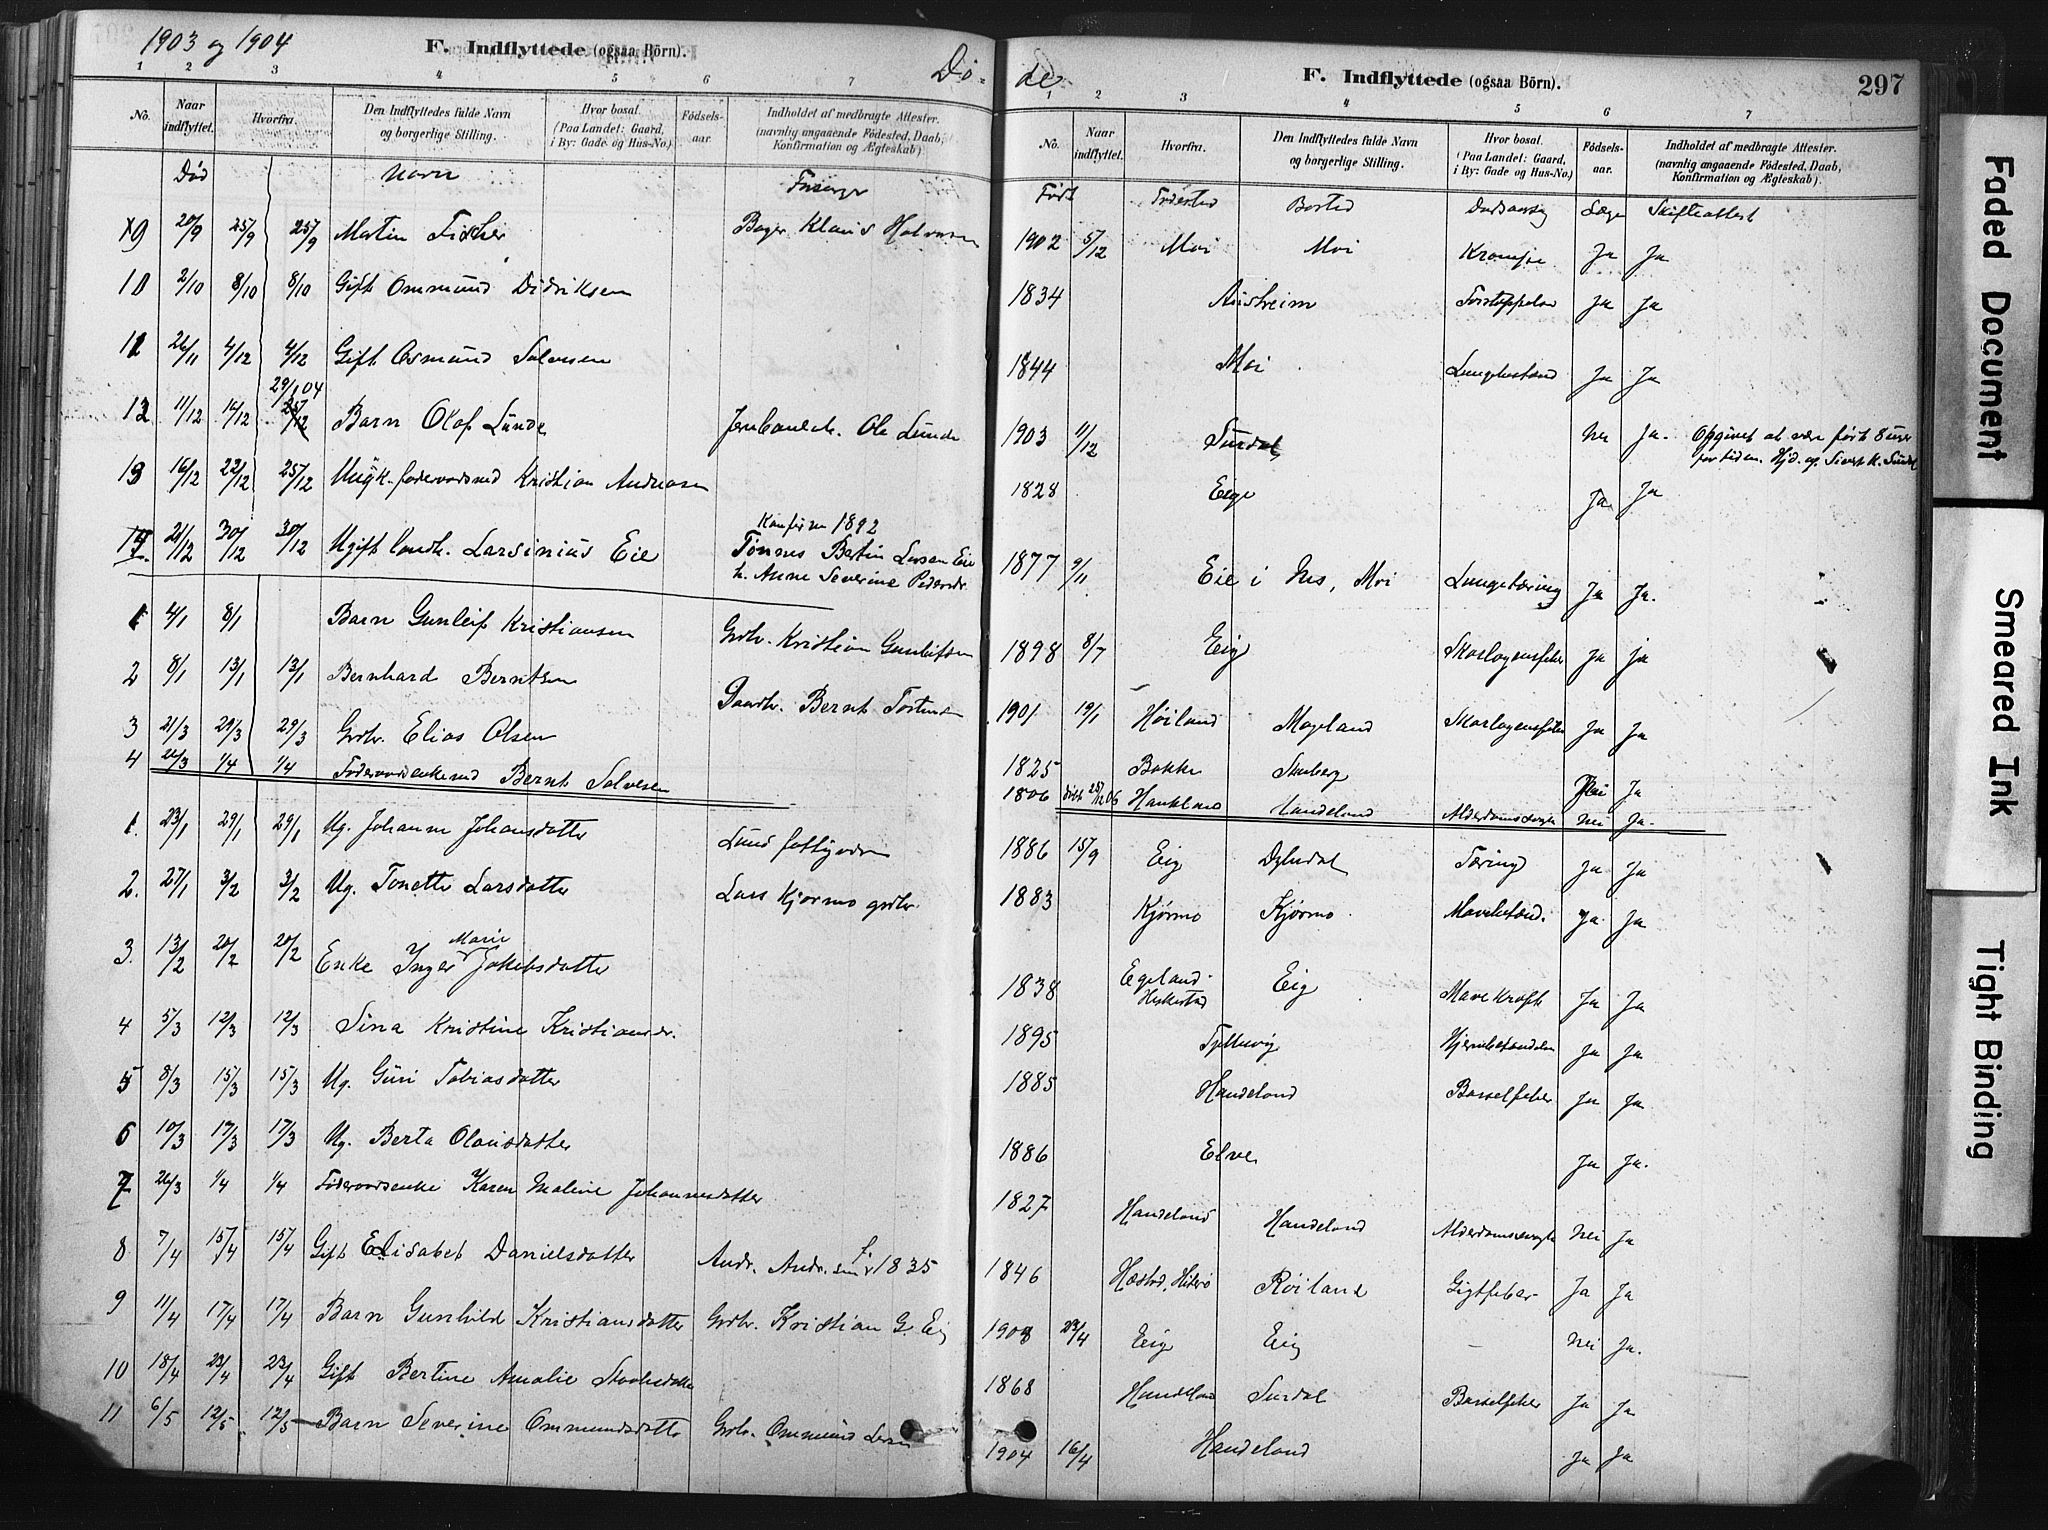 1903 og 1904
F. Indflyttede (ogsaa Börn).
Dø-
1 2 3 4 5 6 7
No. Naar indflyttet. Hvorfra. Den Indflyttedes fulde Navn og borgerlige Stilling. Hvor bosat. (Paa Landet: Gaard, i By: Gade og Hus-No.) Fødsels-aar. Indholdet af medbragte Attester. (navnlig angaaende Födested, Daab, Konfirmation og Ægteskab)
Død Navn
9 20/9 25/9 25/9 Martin Fischer Bager Klaus Halvorsen
10 2/10 8/10 8/10 Gift Ommund Didriksen
11 26/11 4/12 4/12 Gift Osmund Salvesen
29/1 04
12 11/12 14/12 Barn Olaf Lunde Ole Lunde
13 16/12 22/12 25/12 Kristian Andreasen
Konfirm 1892
14 21/12 30/12 30/12 Ugift Larsinius Eie Tønnes Bertin Larsen Eie
h. Anne Severine Pedersdr.
1 4/1 8/1 Barn Gunleif Kristiansen Grdbr. Kristian Gunleifsen
2 8/1 13/1 13/1 Bernhard Berntsen Gaardbr. Bernt
3 21/3 29/3 29/3 Grdbr. Elias Olsen
4 20/3 1/4 1/4 Føderaadsenkemd Bernt Salvesen
1. 23/1 29/1 29/1 Ug. Johanne Johansdatter Lund
2. 27/1 3/2 3/2 Ug. Tonette Larsdatter Lars Kjørmo grdbr.
3. 13/2 20/2 20/2 Enke Inger Marie Jakobsdatter
4 5/3 12/3 12/3 Sina Kristine Kristiansdr.
5 8/3 15/3 15/3 Ug. Guri Tobiasdatter
6 10/3 17/3 17/3 Ug. Berta Olausdatter
7 26/3 1/4 1/4 Føderaadsenke Karen Maline Johannesdatter
8 7/4 15/4 15/4 Gift Elisabet Danielsdatter Andr. Andr.sen f. 1835
9 11/4 17/4 17/4 Barn Gunhild Kristiansdatter Grdbr. Kristian G. Eig
10 18/4 23/4 23/4 Gift Bertine Amalie
11 6/5 12/5 12/5 Barn Severine Ommundsdatter Grdbr. Ommund
de
F. Indflyttede (ogsaa Börn).
297
1 2 3 4 5 6 7
No. Naar indflyttet. Hvorfra. Den Indflyttedes fulde Navn og borgerlige Stilling. Hvor bosat. (Paa Landet: Gaard, i By: Gade og Hus-No.) Fødsels-aar. Indholdet af medbragte Attester. (navnlig angaaende Födested, Daab, Konfirmation og Ægteskab).
Født Fødested Bosted Dødsaarsag Læge Skifteattest
1902 5/12 Moi Moi Ja Ja
1834 Ja Ja
1844 Moi Lungebetænd Ja Ja
1903 11/12 Surdal Nei Ja. Opgivet at være født 8 uger
før tiden.
1828 Eige Ja Ja
1877 9/11 Eie i Ms, Moi Lungetæring Ja Ja.
1898 8/7 Eig Skarlagensfeber Ja ja
1901 19/1 Høiland Mageland Skarlagensfeber Ja Ja
1825 Bakke Nei Ja
1806 døbt 25/12 06 Handeland Alderdomssvagh Nei Ja.
1886 15/9 Eig Tæring Ja Ja
1883 Kjørmo Kjørmo Mavebetænd. Ja Ja
1838 Egeland Heskestad Eig Mavekræft Ja Ja
1895 Hjernebetændelse Ja Ja
1885 Handeland Barselfeber Ja Ja
1886 Elve Ja Ja.
1827 Handeland Handeland Alderdomssvagh Nei Ja
1846 Hæstad, Hiterø Røiland Gigtfeber Ja Ja
1903 23/4 Eig Eig - Nei Ja.
1868 Handeland Surdal Barselfeber Ja Ja
1904 16/4 Handeland Ja Ja
Faded Document
Smeared Ink
Tight Binding